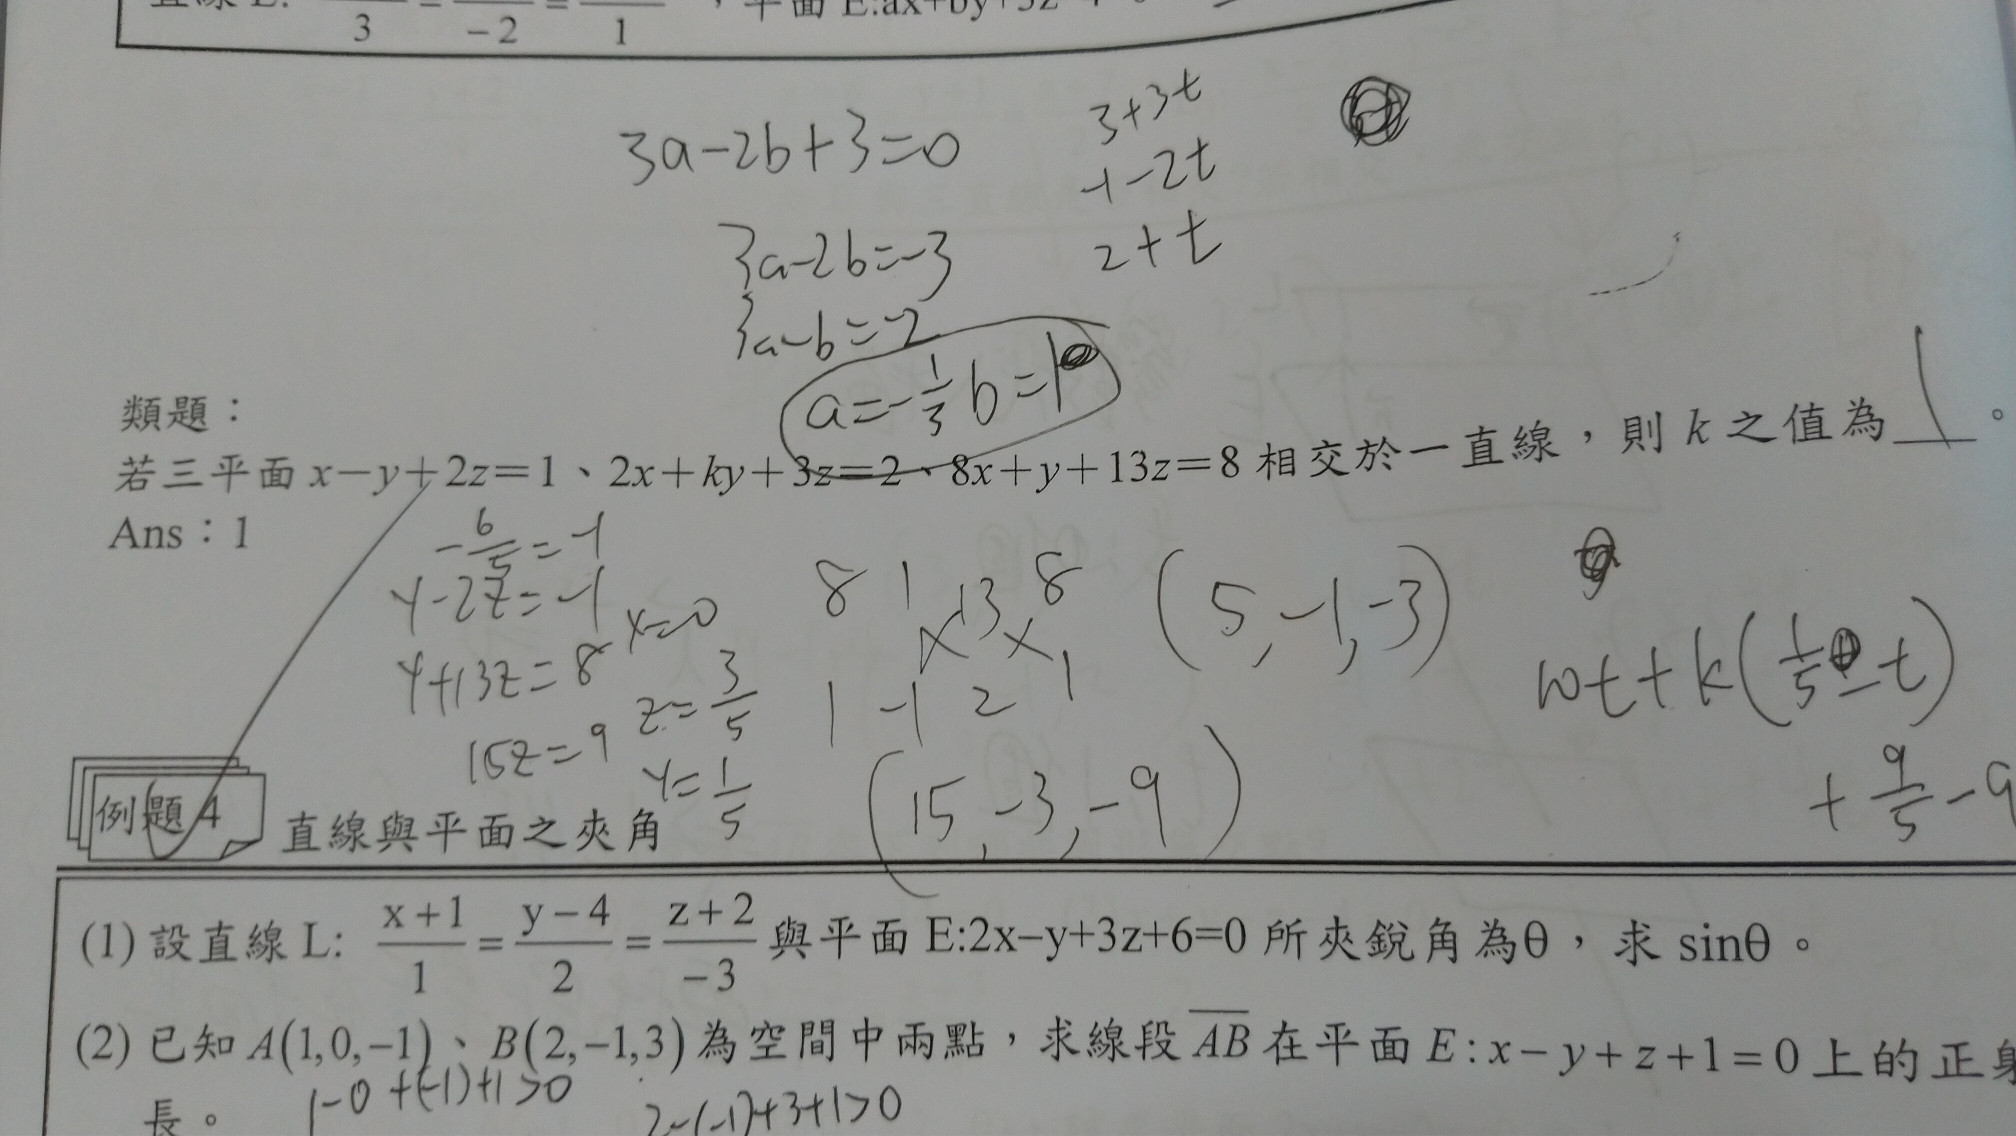 3 -2 1
3a-2b+3=0
3+3t
-1-2t
2+t
3a-2b=-3
3a-b=-2
a=-1/3 b=1
類題：
若三平面 x-y+2z=1、2x+ky+3z=2、8x+y+13z=8 相交於一直線，則 k 之值為 1 。
Ans：1
-6/5=-1
y-2z=-1
x=0
y+13z=8
15z=9
z=3/5
y=1/5
8 1 13 8
1 -1 2 1
(5,-1,-3)
(15,-3,-9)
10t+k(1/5-t)
+9/5-9
例題 4 直線與平面之夾角
(1) 設直線 L: (x+1)/1 = (y-4)/2 = (z+2)/-3 與平面 E:2x-y+3z+6=0 所夾銳角為θ，求 sinθ。
(2) 已知 A(1,0,-1)、B(2,-1,3) 為空間中兩點，求線段 AB 在平面 E:x-y+z+1=0 上的正
長。 1-0+(-1)+1>0 2-(-1)+3+1>0